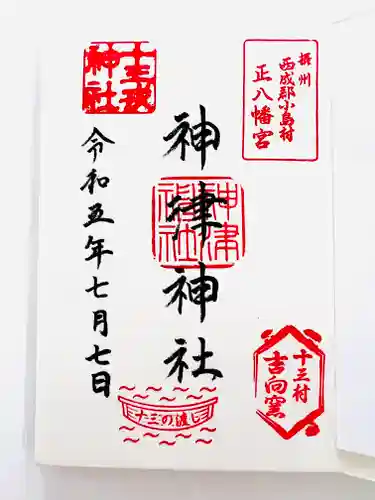 摂州
西成郡小島村
正八幡宮
神津神社
神津神社
十三村
吉向窯
十三戎神社
令和五年七月七日
十三の渡し